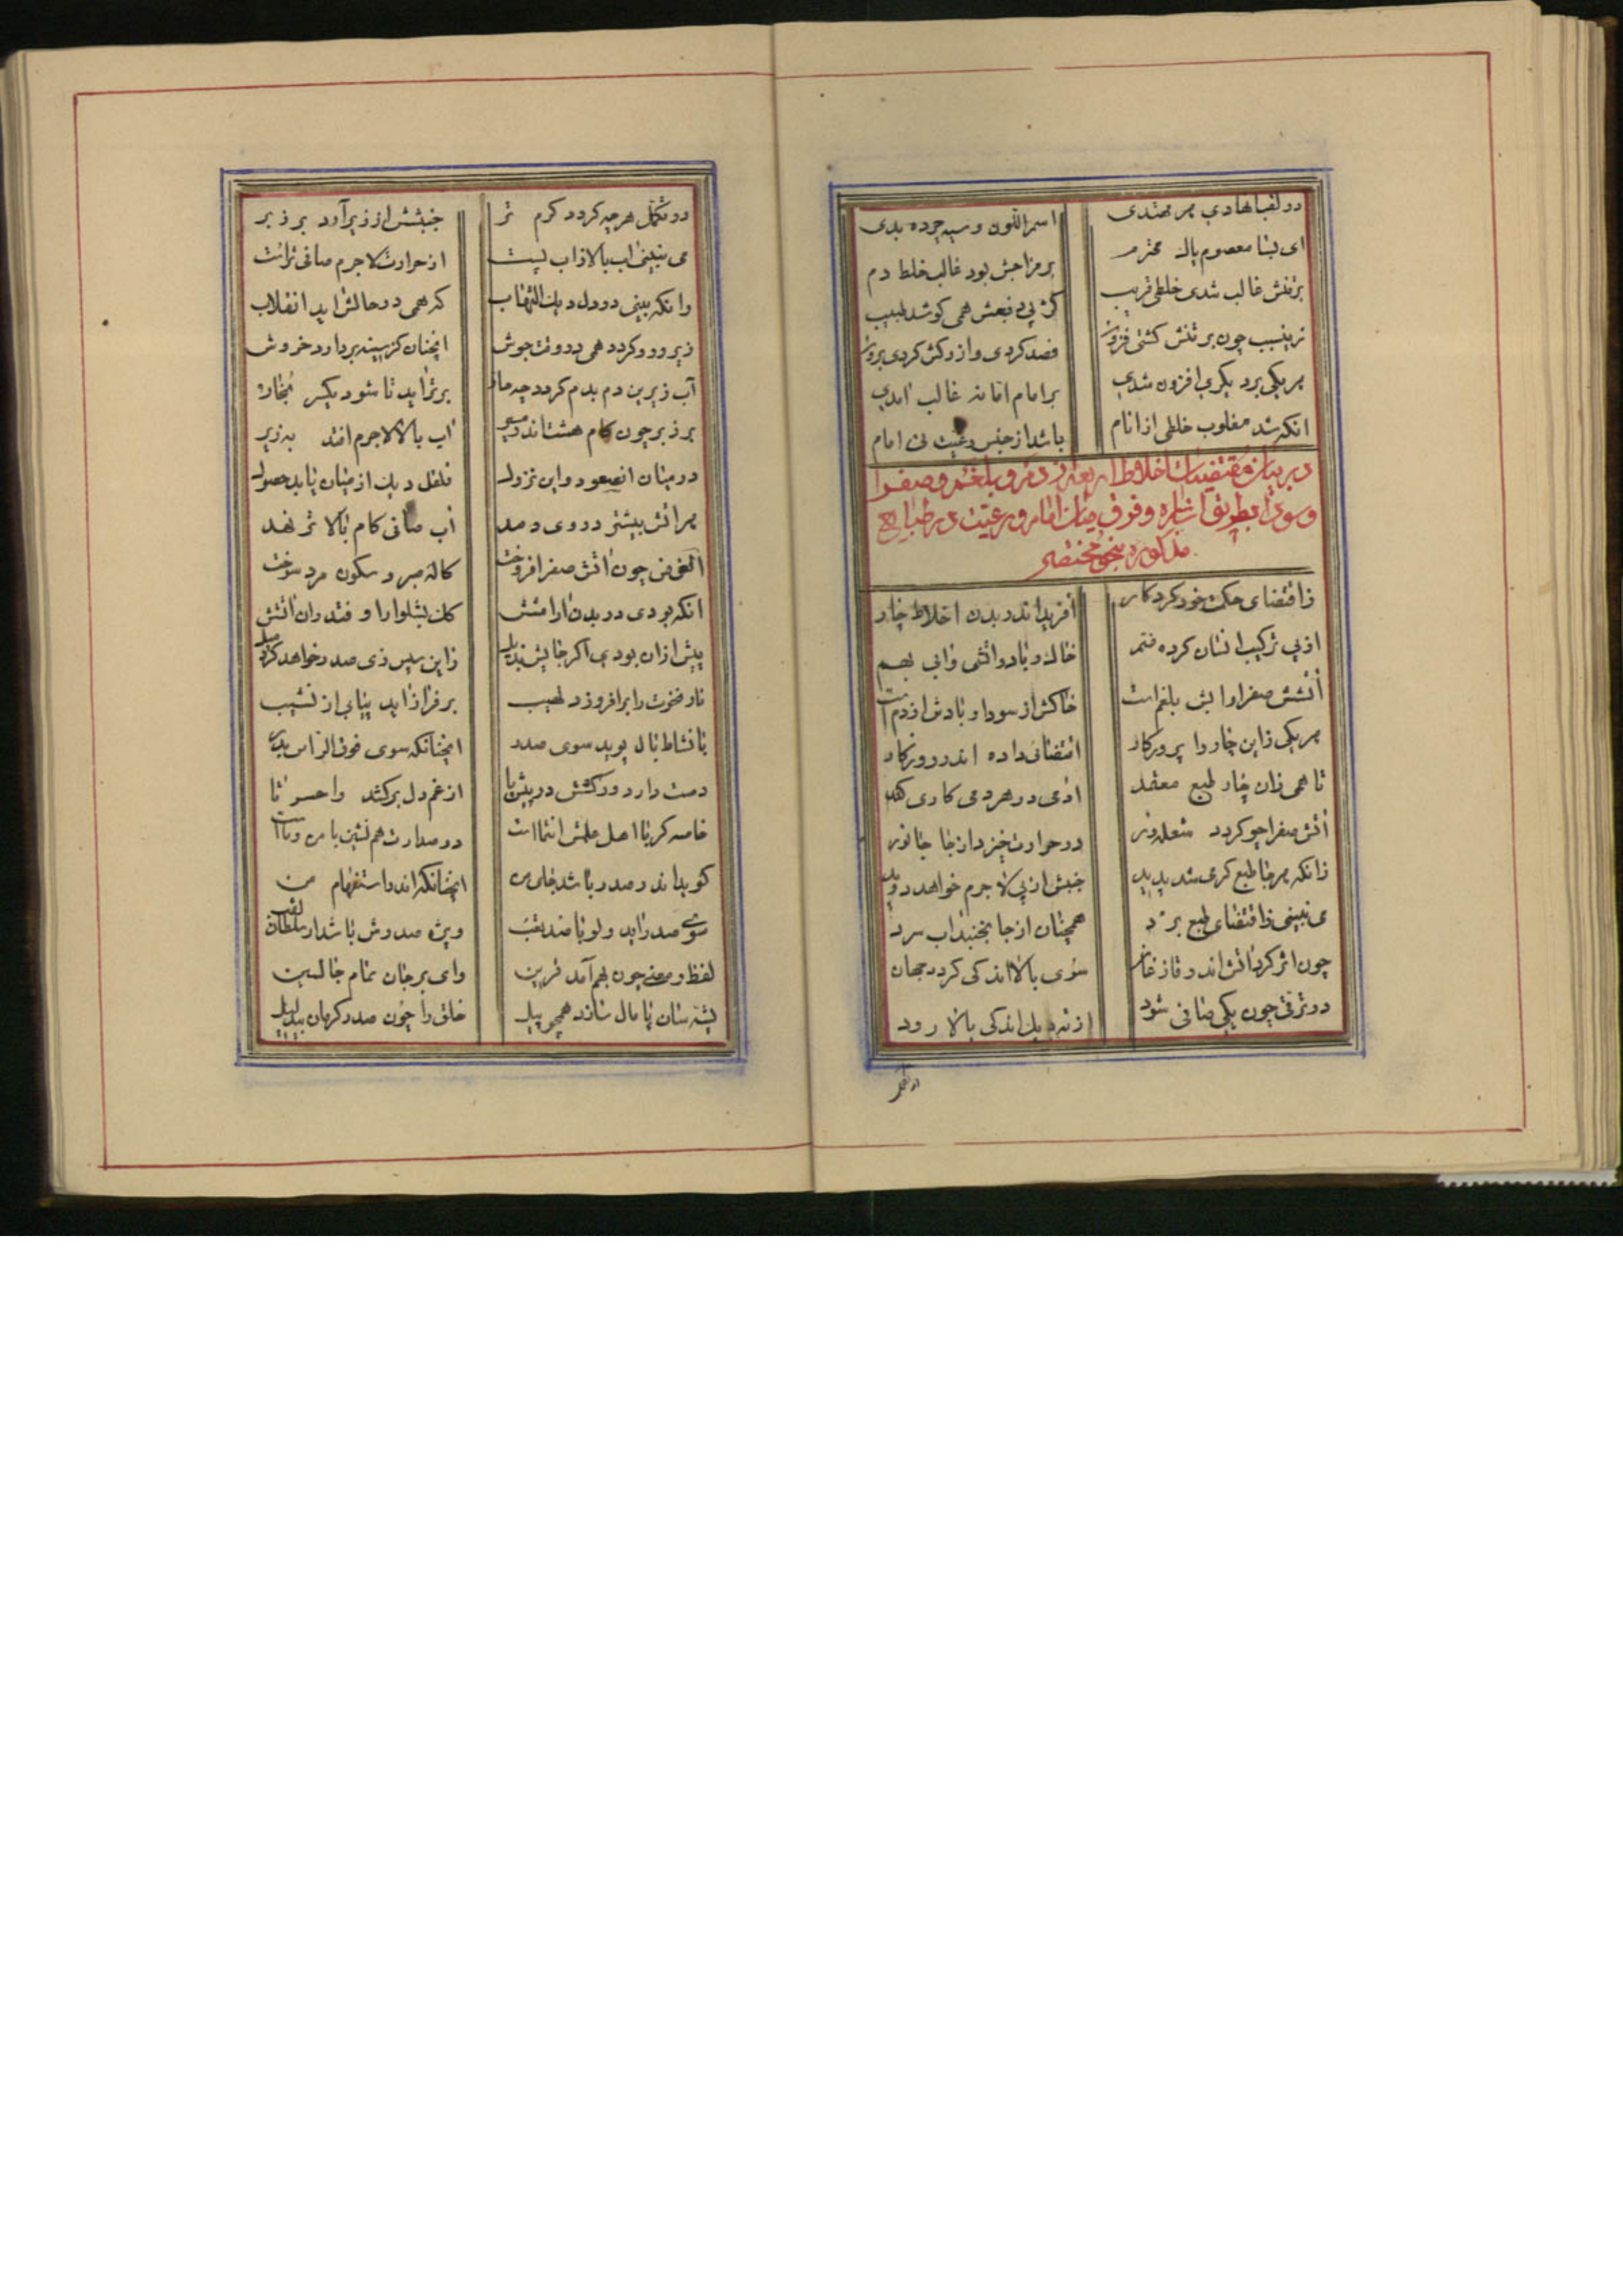 در لقبها هادی هر مهتدی اسمر اللون و سیه چرده بدی
ای بسا معصوم پاک محترم بر مزاجش بود غالب خلط دم
بر تنش غالب شدی خلطی قریب کز پی دفعش همی کوشد طبیب
زینسبب چون بر تنش کشتی فزون فصد کردی و از رکش کردی برون
هر یکی بر دیکری افزون شدی بر امام اما نه غالب امدی
انکه شد مغلوب خلطی از انام باشد از جنس رعیت نی امام
در بیان مقتضیات اخلاط اربعه از دم و بلغم و صفرا
و سودا بطریق اشاره و فرق میان امام و رعیت در طبایع
مذکوره بنحو مختصر
ز اقتضای حکمت خود کردکار آفرید اندر بدن اخلاط چار
از پی ترکیب انسان کرده ضم خاک و باد و اتشی و ابی بهم
آتشش صفرا و ابش بلغم است خاکش از سودا و بادش از دم است
هر یکی زاین چار را پرورکار اقتضائی داده اندر روزکار
تا همی زان چار طبع معتقد ادمی در هر دمی کاری کند
آتش صفرا چو کردد شعله ور در حرارت خیزد از جا جانور
زانکه هر جا طبع کرمی شد پدید جنبش از پی لاجرم خواهد دوید
می نبینی ز اقتضای طبع برد همچنان از جا نجنبد آب سرد
چون اثر کرد آتش اندر قازغان سوی بالا اندکی کردد جهان
در ترقی چون یکی صافی شود از ته دیک اندکی بالا رود
در تکمل هر چه کردد کرم تر جنبشش از زیر آرد بر زبر
می نبینی اب بالا ز اب پست از حرارت لاجرم صافی تر است
وانکه بینی در دل دیک التهاب که همی در حالش اید انقلاب
زیر و رو کردد همی در وقت جوش انچنان کز سینه بردارد خروش
آب زیرین دم بدم کردد چه مار برتر اید تا شود یکسر بخار
بر زبر چون کام هشت اندر مسیر آب بالا لاجرم افتد به زیر
در میان ان صعود و این نزول قلقل دیک از میان یابد حصول
هر اتش بیشتر در وی دمد آب صافی کام بالاتر نهد
الغرض چون اتش صفرا فروخت کاله صبر و سکون مرد سوخت
انکه بودی در بدن ارامشش کان بشلوارا و فتد زان اتشش
پیش ازان بودی اکر جایش زاین سپس زی صدر خواهد کرد میل
نار نخوت را برافروزد لهیب بر فراز اید بنای از نشیب
با نشاط بال پوید سوی صدر انچنانکه سوی فوق الراس بدر
دست دارد ور کشش در پیش پا از غم دل برکشد واحسرتا
خاصه کر با اهل علمش انتما است در صدارت هم نشین با من و ما است
کوید اندر صدر باشد جای من انچنانکه اندر استفهام من
سوی صدر اید ولو با صد تعب ویژه صدرش باشد ار سلطان لقب
لفظ و معنی چون بهم آمد قرین وای بر جان تمام جالسین
پشه سان پامال سازد همچو پیل خلق را چون صدر کرمان بیدلیل
در تکمل